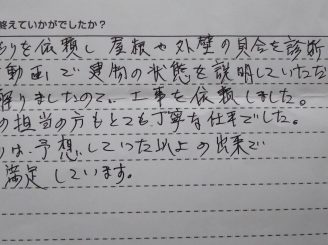 終えていかがでしたか？
もりを依頼し屋根や外壁の具合を診断
動画で建物の状態を説明していただ
解りましたので、工事を依頼しました。
の担当の方もとても丁寧な仕事でした。
りは予想していた以上の出来で
満足しています。